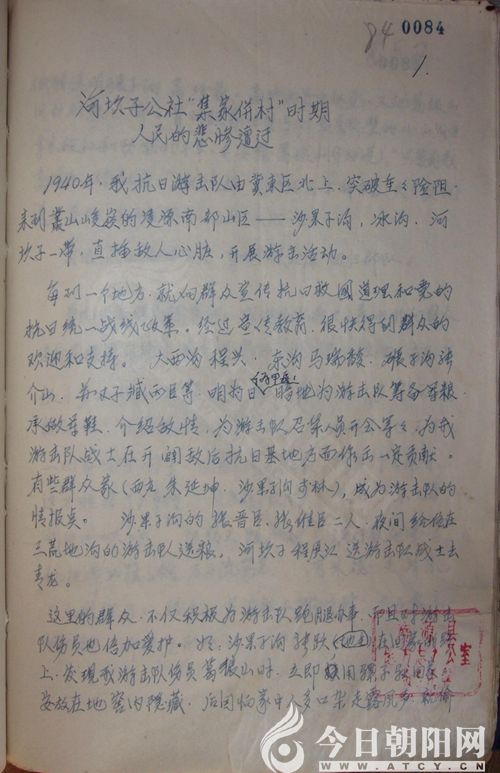 84 0084
1
河坎子公社“集家併村”时期
人民的悲惨遭迂
1940年,我抗日游击队由冀东区北上,突破重々险阻,
来到叢山峻嶺的凌源南部山区——沙果子沟,冰沟,河
坎子一带,直插敌人心脏,开展游击活动。
每到一个地方,就向群众宣传抗日救國道理和党的
抗日统一战线政策。经过宣传教育,很快得到群众的
欢迎和支持。大西沟程兴,东沟马瑞馥,碾子沟
介山,臧西臣等,明为日 暗地为游击队筹备军粮,
承做军鞋,介绍敌情,为游击队召集人员开会等々,为我
游击队战士在开闢敌后抗日基地方面作出一定贡献。
有些群众家(朱延坤,沙果子沟林),成为游击队的
情报点。沙果子沟的张晋臣,张佳臣二人,夜间给住在
三荒地沟的游击队送粮,河坎子程展江送游击队战士去
青龙。
这里的群众,不仅积极为游击队跑腿办事,而且对游击
队伤员也倍加爱护。如:沙果子沟张跃(地主)在回家的路
上,发现我游击队伤员葛狼山时,立即用骡子驮回家
安放在地窖内隐藏,后因怕家中人多口杂走露风声,就偷
县公
室
今日朝阳网
WWW.ATCY.CN